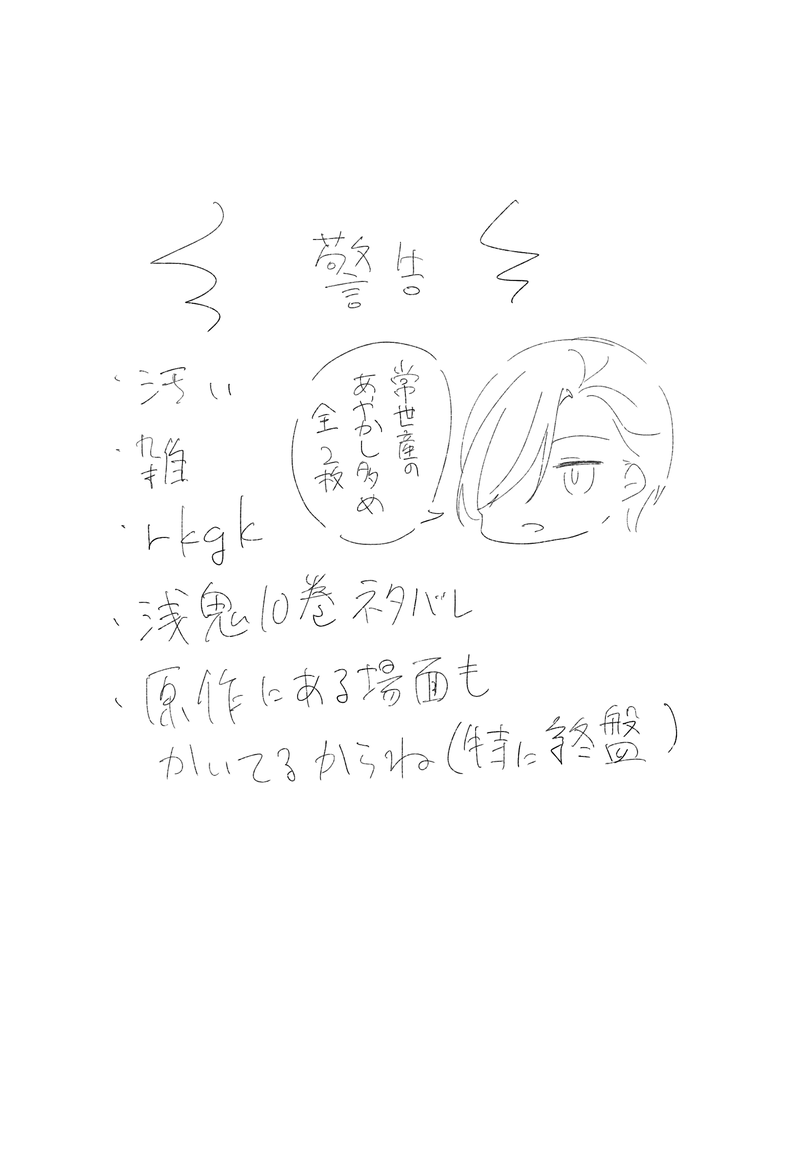 警告
・汚い
・雑
・rkgk
・浅鬼10巻ネタバレ
・原作にある場面も
かいてるからね(特に終盤)
常世産の
あやかし多め
全2枚